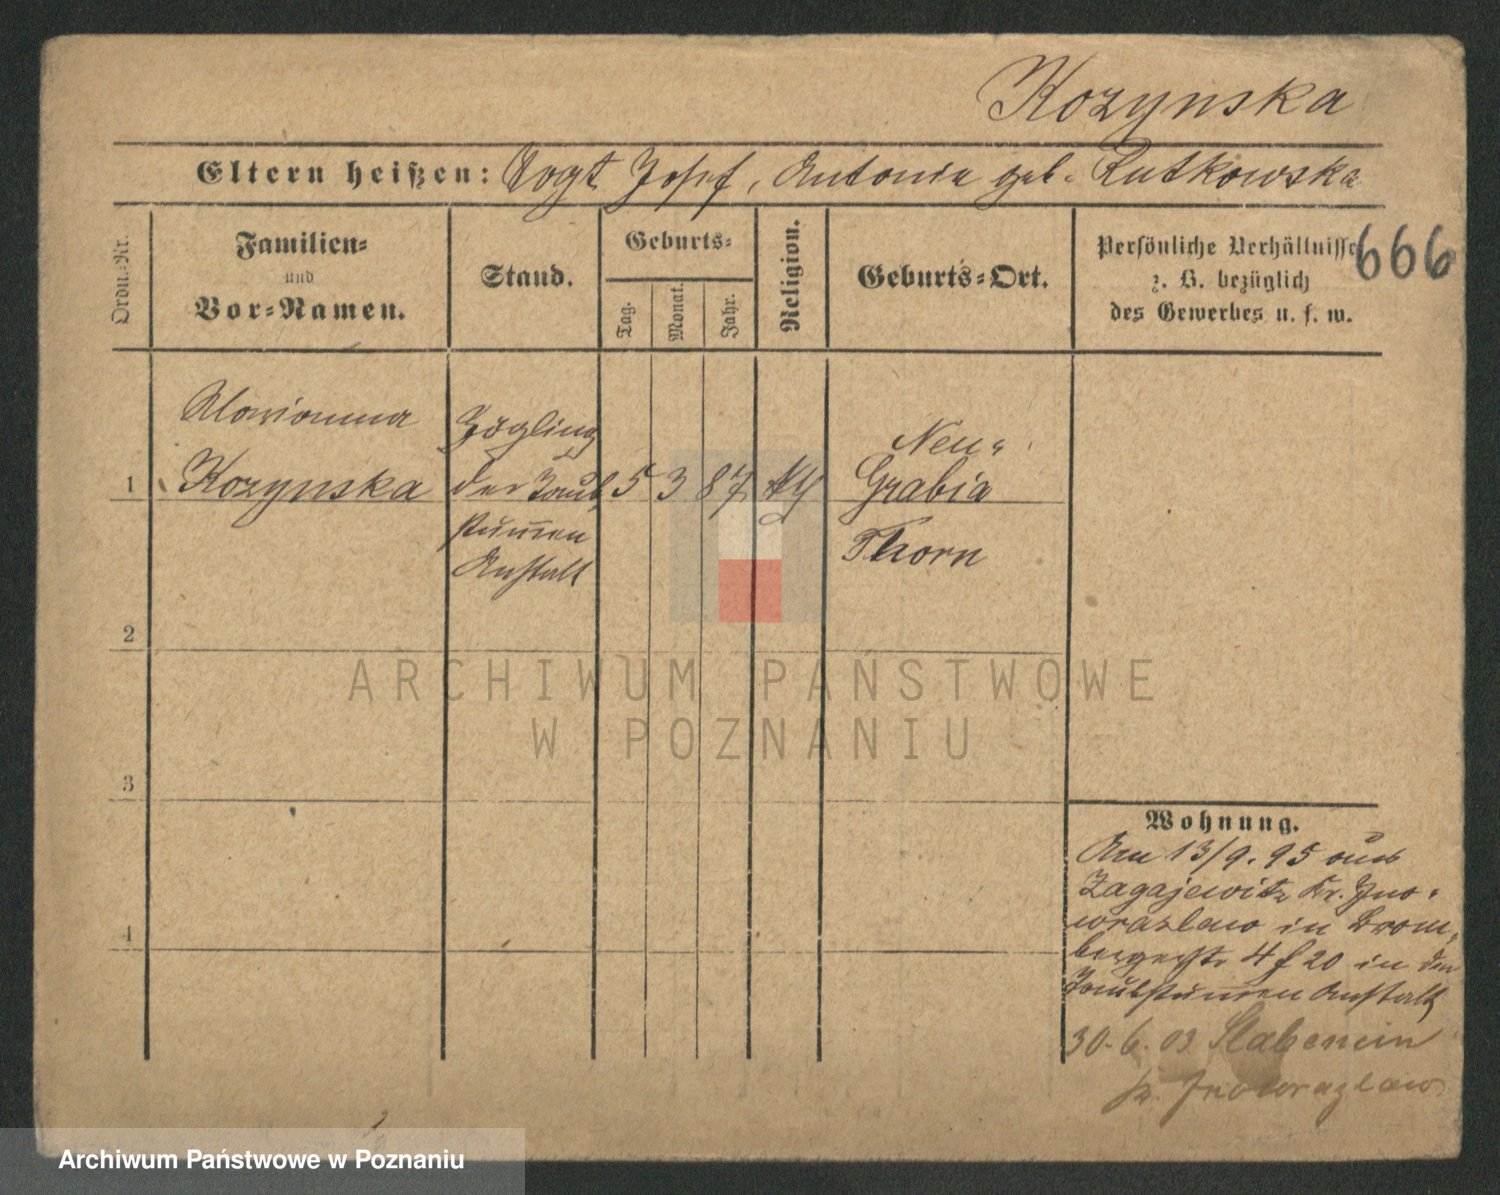 Kozynska
Eltern heißen: Vogt Josef, Antonia geb. Rutkowska
Ordn.-Nr.
Familien-
und
Vor-Namen.
Stand.
Geburts-
Tag.
Monat.
Jahr.
Religion.
Geburts-Ort.
Persönliche Verhältnisse
z. B. bezüglich
des Gewerbes u. s. w.
666
1
Marianna
Kozynska
Zögling
der Taub
stum̅en
Anstalt
5 3 87
Neu-
Grabia
Thorn
2
3
4
Wohnung.
Am 13/9. 95 aus
Zagajewitz Kr. Ino-
wrazlaw in Brom-
bergerstr 4 f 20 in der
Taubstum̅en Anstalt
30. 6. 03 Slabencin
Kr. Inowrazlaw
ARCHIWUM PAŃSTWOWE
W POZNANIU
Archiwum Państwowe w Poznaniu